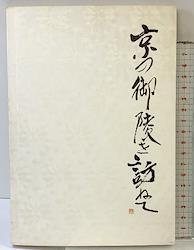 京の御陵を訪ねて